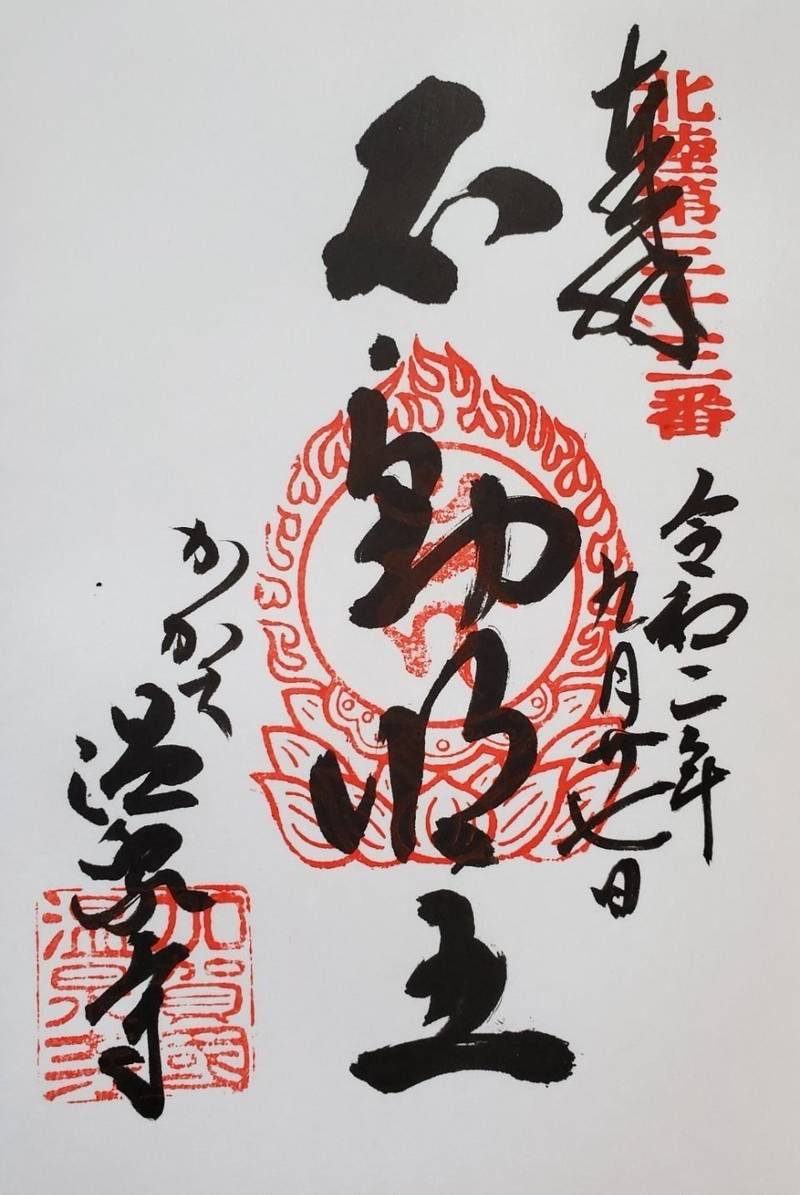 奉拝
北陸第三十三番
令和二年
九月廿七日
不動明王
かが
温泉寺
加賀國
温泉寺